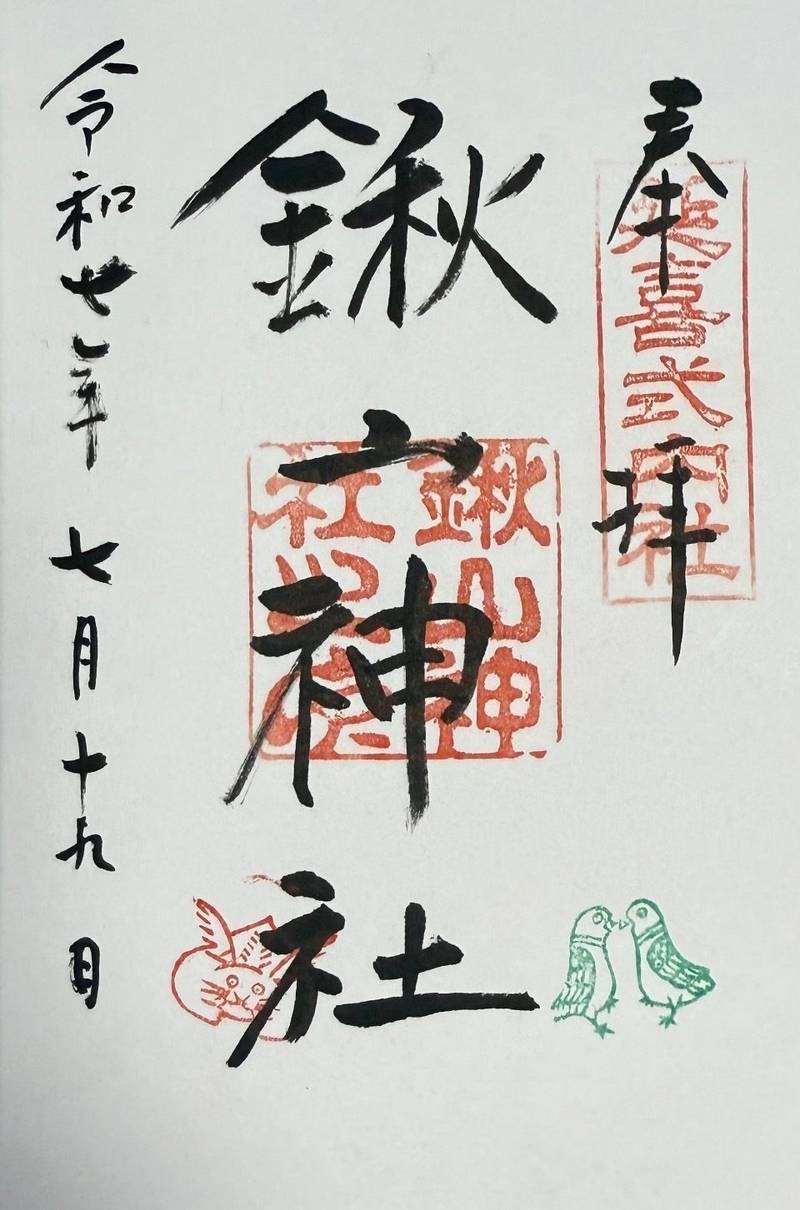 奉拝
延喜式内社
鍬山神社
鍬山神
社
令和七年七月十九日